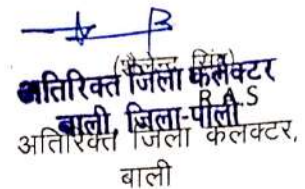 (शैलेन्द्र सिंह)
अतिरिक्त जिला कलेक्टर
R A S
बाली, जिला-पाली
अतिरिक्त जिला कलेक्टर,
बाली